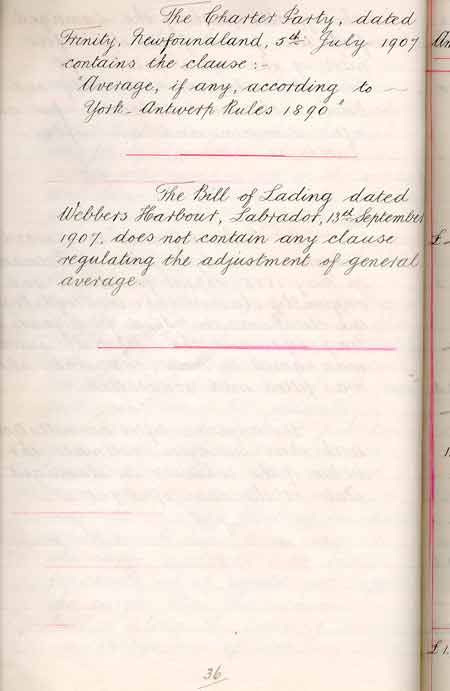 The Charter Party, dated
Trinity, Newfoundland, 5th July 1907
contains the clause :-
"Average, if any, according to
York-Antwerp Rules 1890"
The Bill of Lading dated
Webbers Harbour, Labrador, 13th September
1907, does not contain any clause
regulating the adjustment of general
average
36